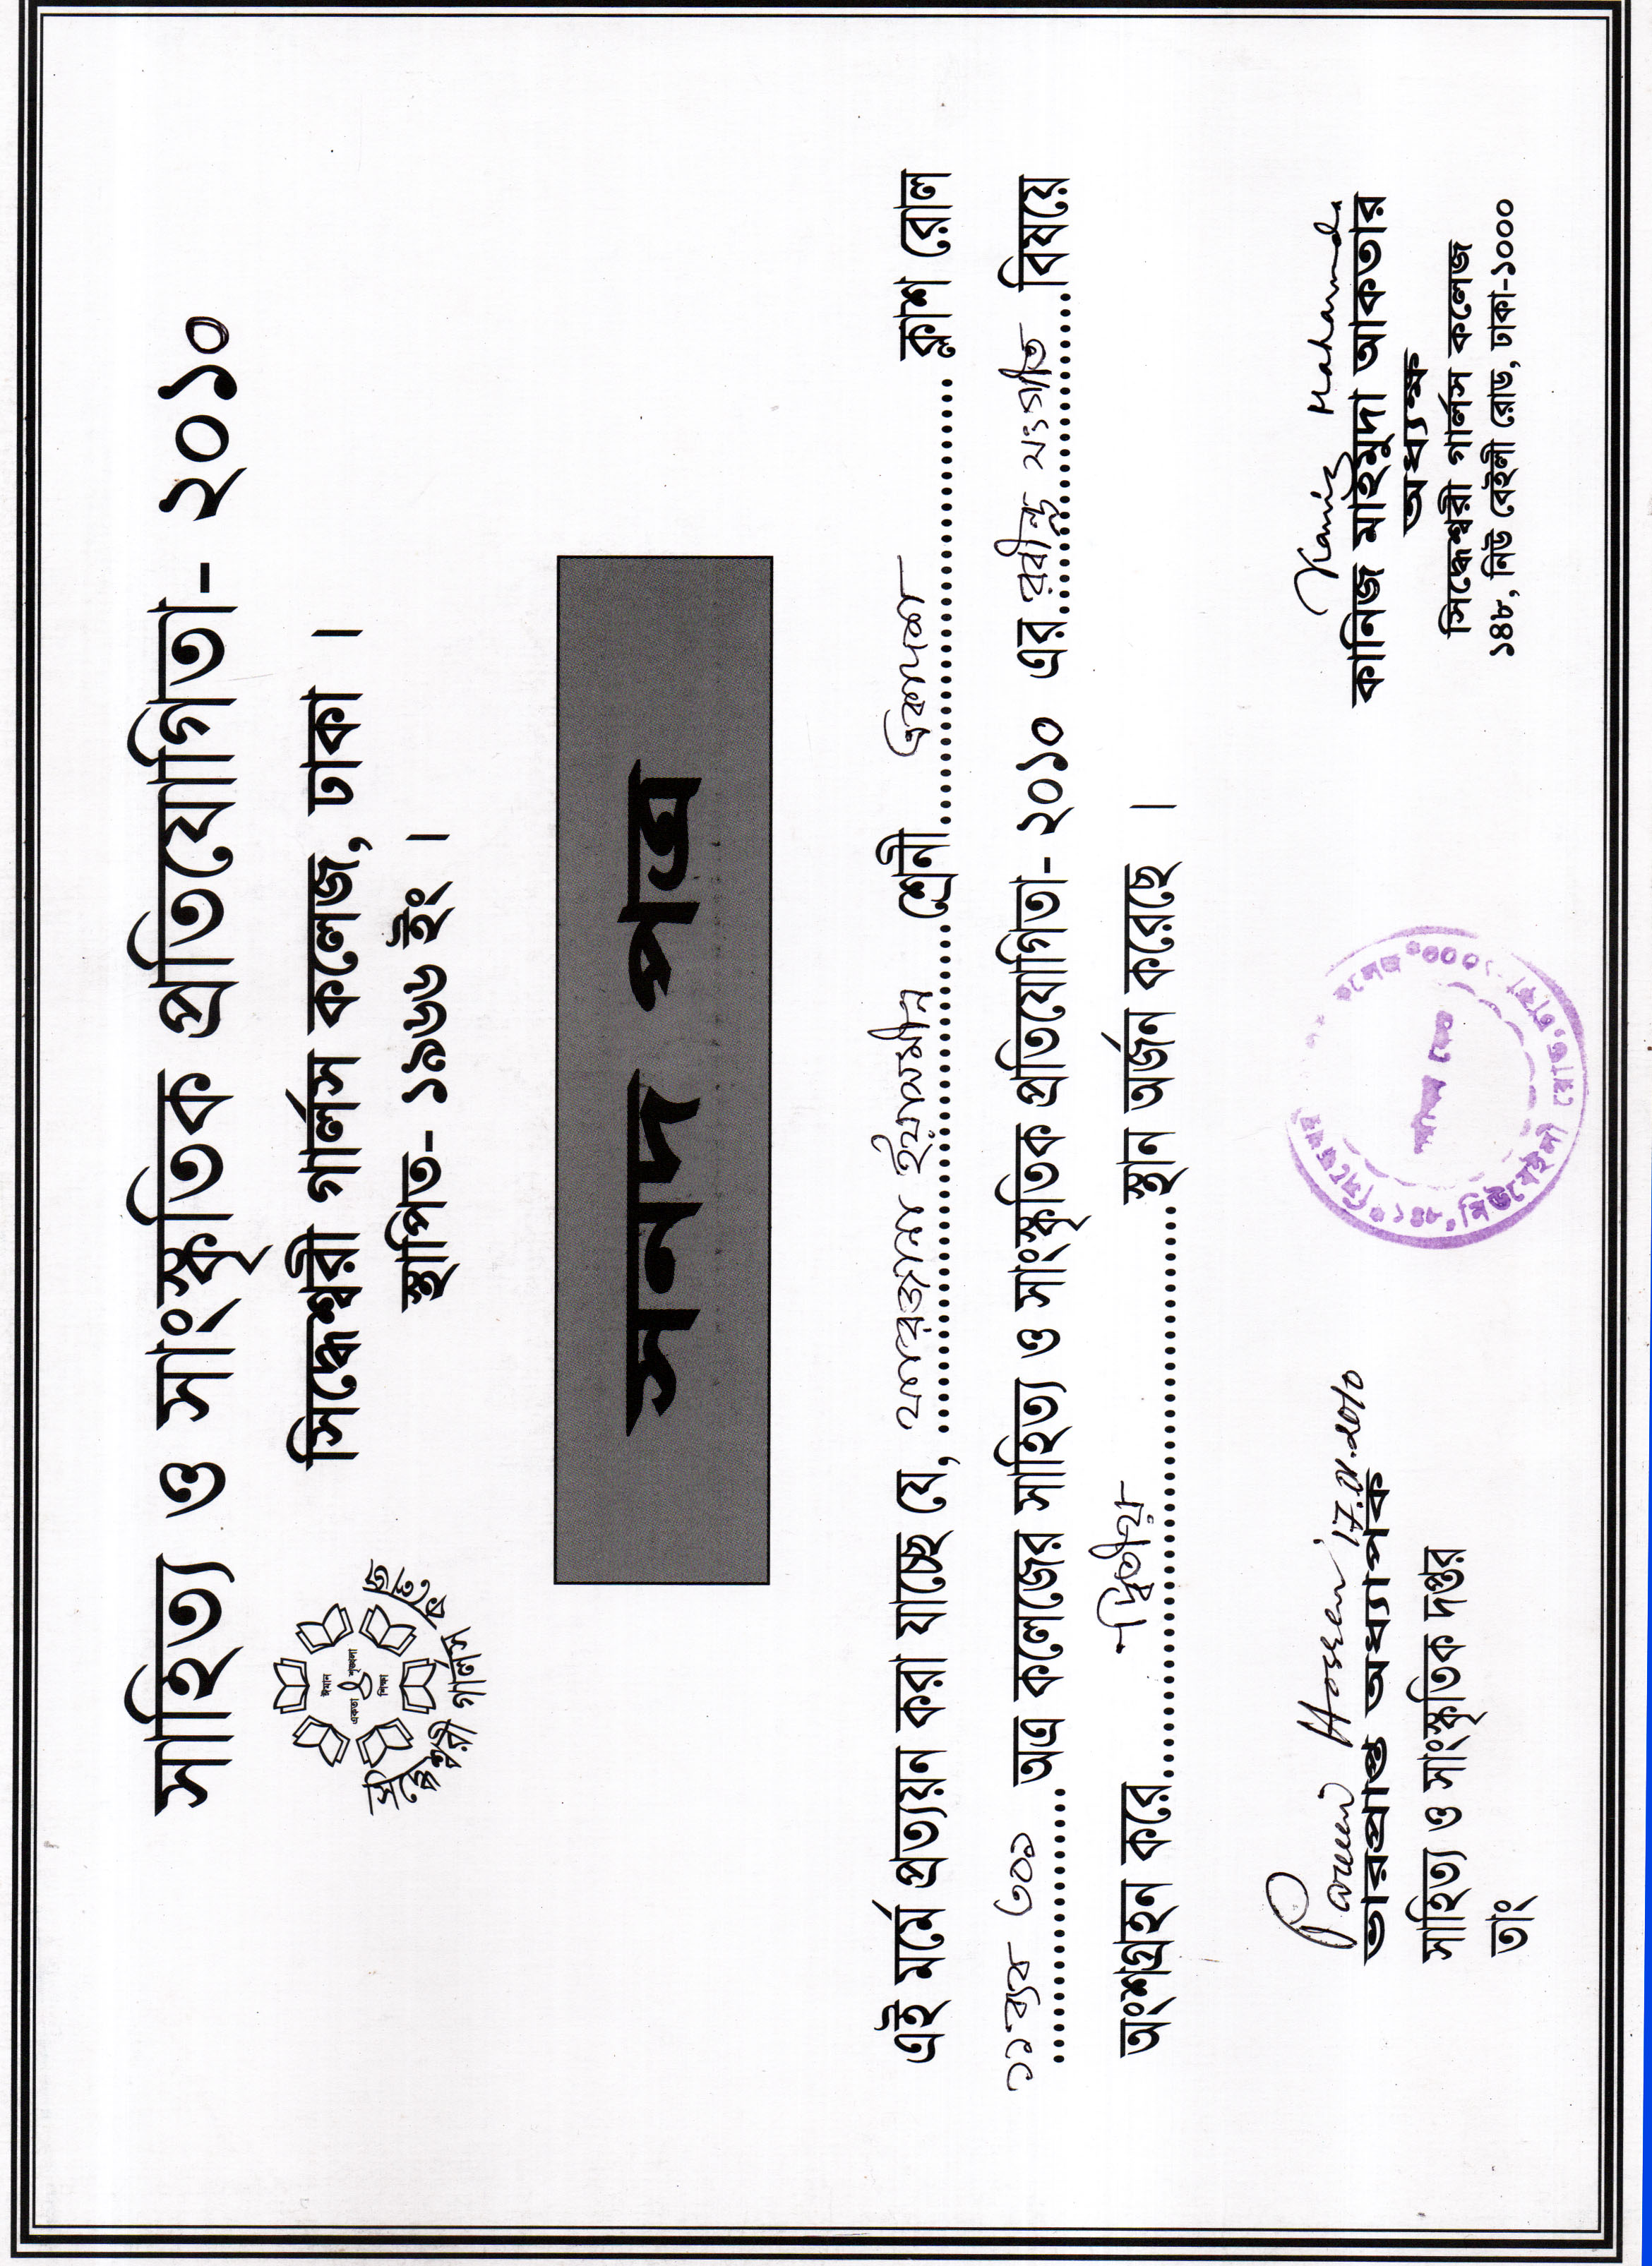 সাহিত্য ও সাংস্কৃতিক প্রতিযোগিতা- ২০১০
সিদ্ধেশ্বরী গার্লস কলেজ, ঢাকা ।
স্থাপিত- ১৯৬৬ ইং ।
ঈমান
একতা শৃঙ্খলা
শিক্ষা
সিদ্ধেশ্বরী গার্লস কলেজ
সনদ পত্র
এই মর্মে প্রত্যয়ন করা যাচ্ছে যে, ফারজানা ইয়াসমীন শ্রেনী একাদশ ক্লাশ রোল
১১ব্যব ৩০৯ অত্র কলেজের সাহিত্য ও সাংস্কৃতিক প্রতিযোগিতা- ২০১০ এর রবীন্দ্র সংগীত বিষয়ে
অংশগ্রহন করে দ্বিতীয় স্থান অর্জন করেছে ।
Parveen Hossen 17.01.2010
ভারপ্রাপ্ত অধ্যাপক
সাহিত্য ও সাংস্কৃতিক দপ্তর
তাং
সিদ্ধেশ্বরী কলেজ
নিউবেইলী রোড, ঢাকা-১০০০
Kaniz Mahamuda
কানিজ মাহমুদা আকতার
অধ্যক্ষ
সিদ্ধেশ্বরী গার্লস কলেজ
১৪৮, নিউ বেইলী রোড, ঢাকা-১০০০